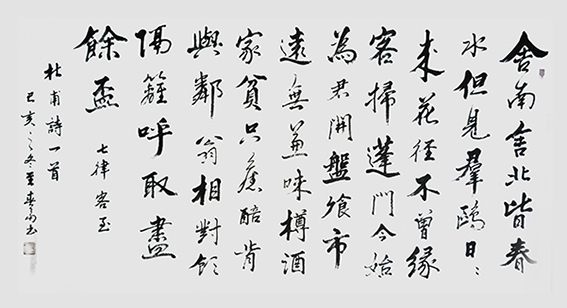 舍南舍北皆春
水但見羣鷗日〻
来花徑不曾緣
客掃蓬門今始
為君開盤飧市
遠無兼味樽酒
家貧只舊醅肯
與鄰翁相對飲
隔籬呼取盡
餘盃
七律客至
杜甫詩一首
己亥之冬至